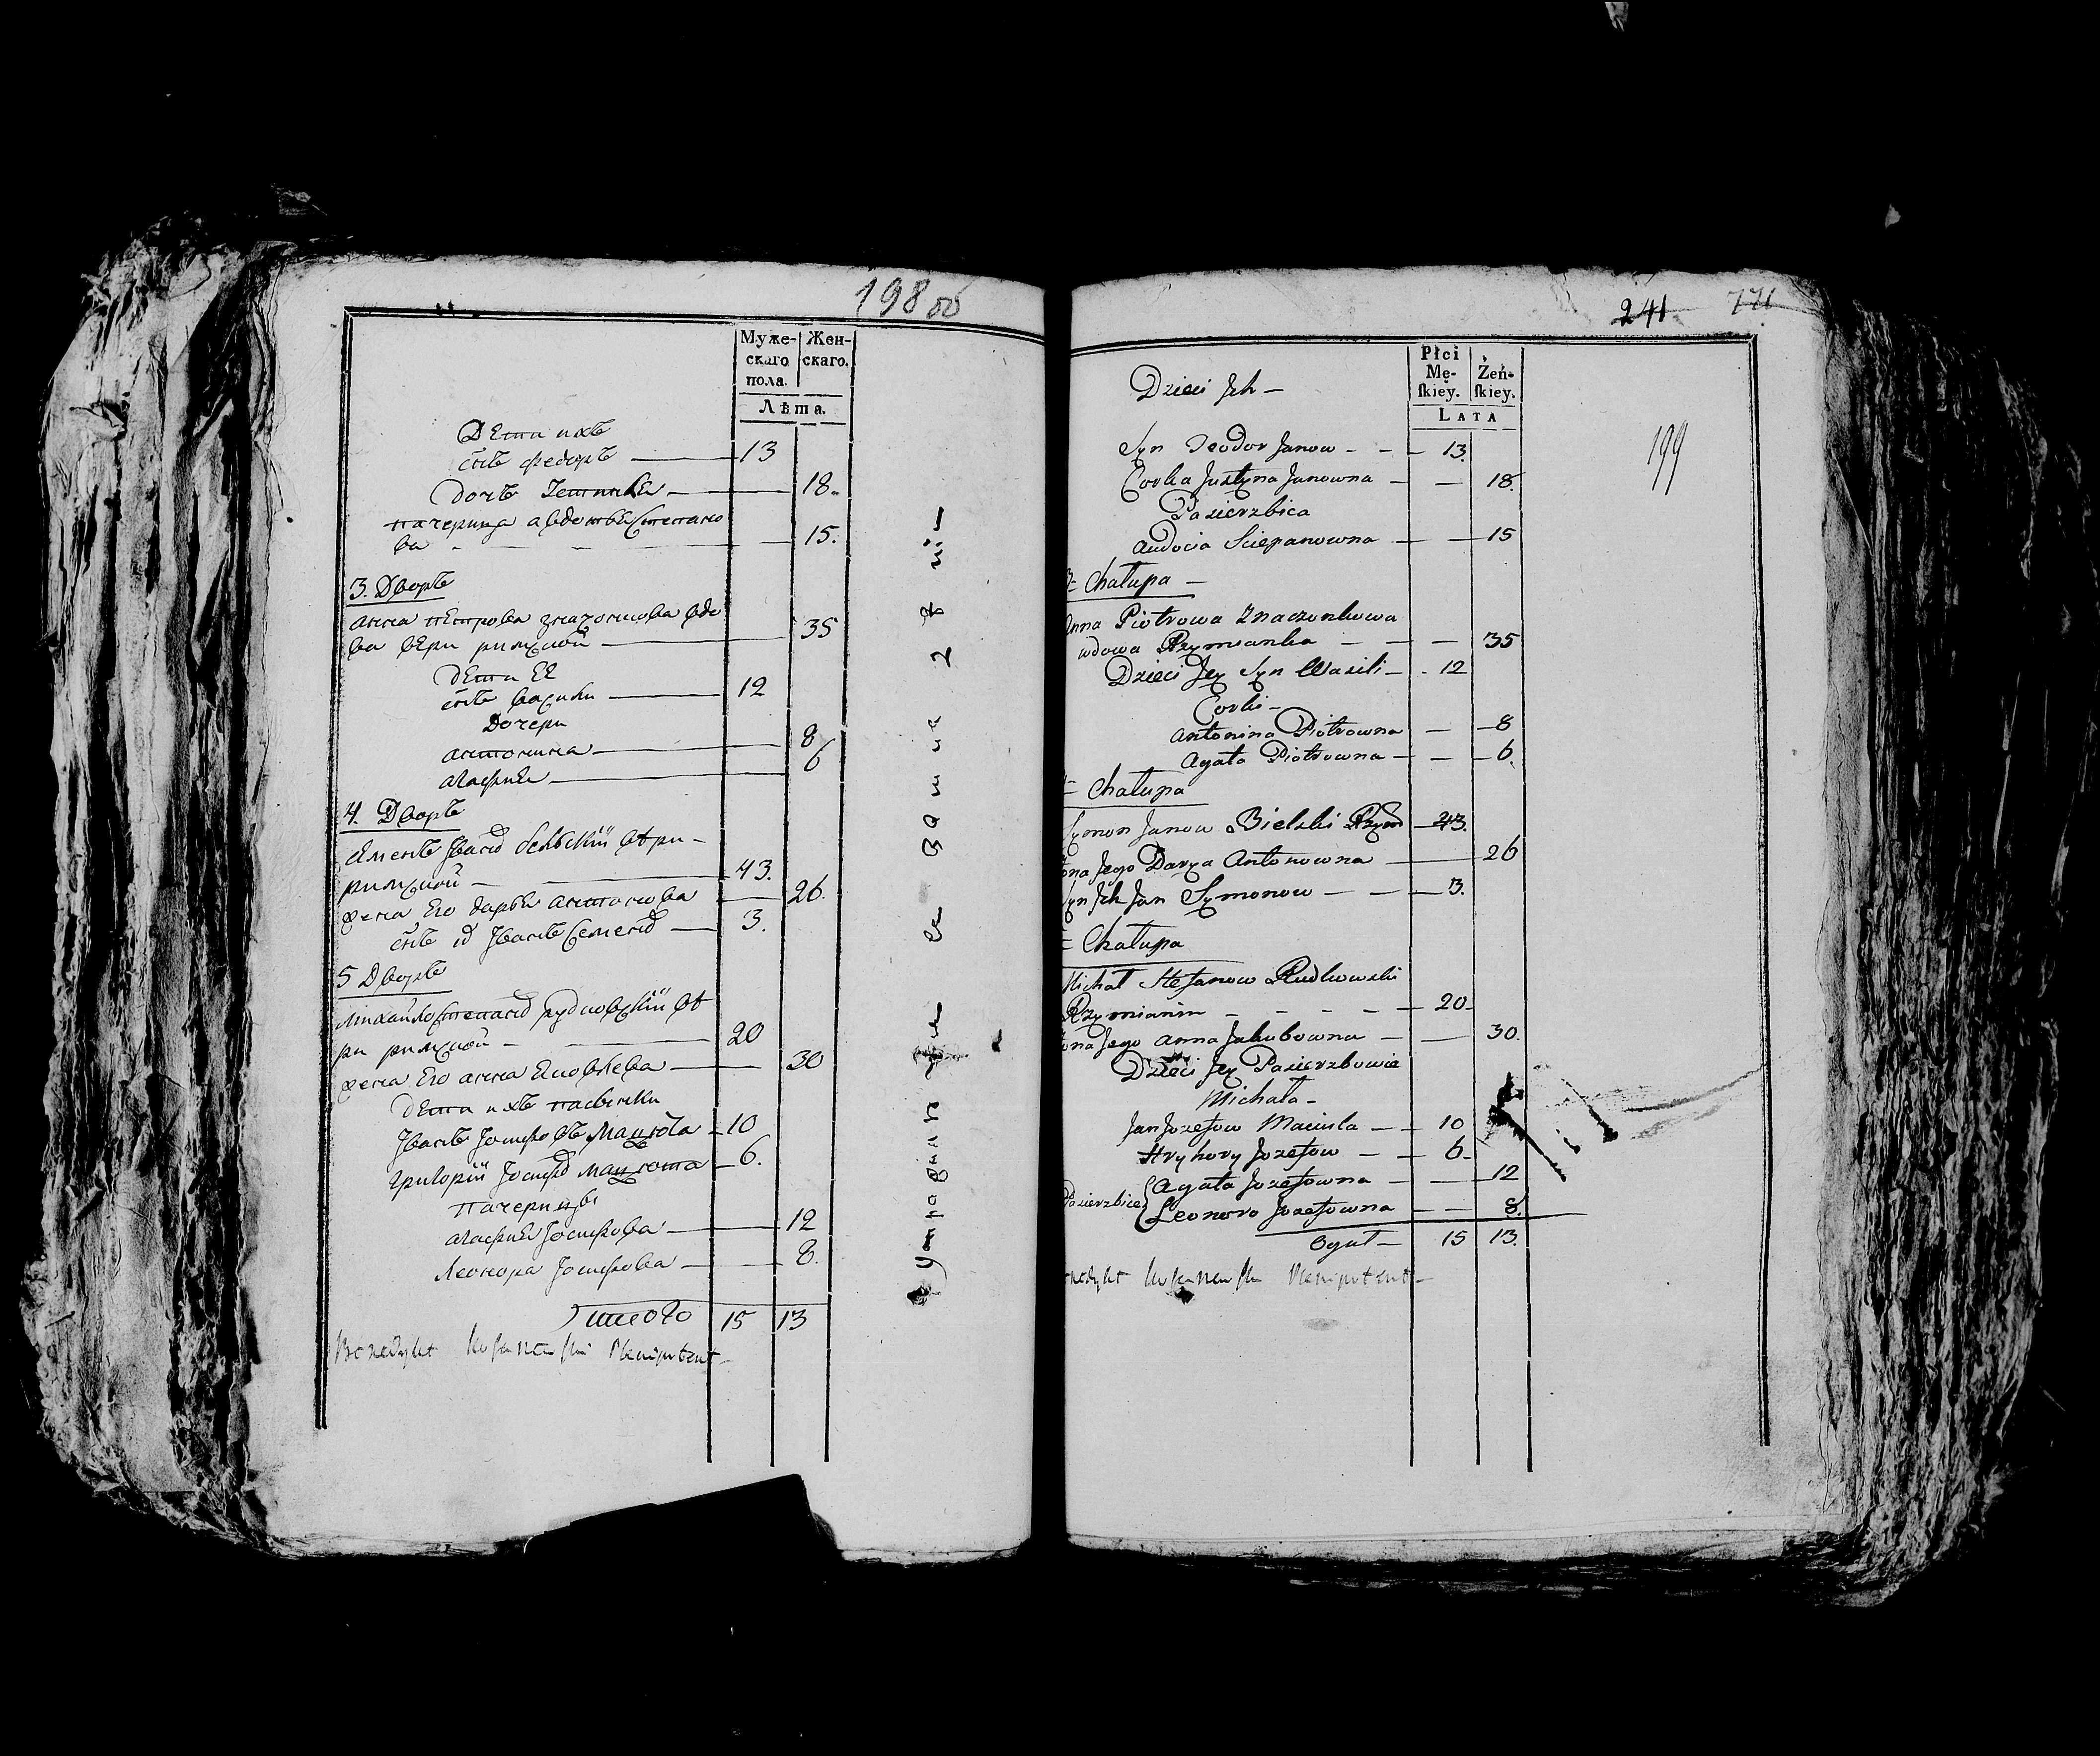 198 об
Муже-
скаго
пола.
Жен-
скаго.
Лѣта.
Дети ихъ
снъ Федоръ 13
Дочь 18.
пачерица авдотья Степано
ва 15.
3. Дворъ
анна петрова вдо
ва вѣри римской 35
дети ЕЕ
снъ василий 12
Дочери
антонина 8
агафия 6
4. Дворъ
Семенъ Иванов белский вѣри
римской 43.
жена Его дарья антонова 26.
снъ их Иванъ Семенов 3.
5 Дворъ
михайло Степанов рудковский вѣ
ри римской 20
жена Его анна Яковлева 30
дети ихъ пасынки
Иванъ Іосифовъ Мацюла 10
григорий Іосифов 6.
пачерицы
агафия Іосифова 12
Леонора Іосифова 8.
Итого 15 13
Benedykt Plenipotent
241
771
199
Płci
Mę-
ſkiey.
Żeń-
ſkiey.
LATA
Dzieci Jch
Syn Teodor Janow 13.
Corka Justyna Janowna 18.
Pasierzbica
Audocia Sciepanowna 15
3 = Chałupa
Anna Piotrowa Znaczonkowa
wdowa Rzymianka 35
Dzieci Jey Syn Wasili 12
Corki
Antonina Piotrowna 8
Agata Piotrowna 6.
= Chałupa
Symon Janow Bielski Rzym 43.
żona Jego Darya Antonowna 26
Syn Jch Jan Symonow 3.
= Chałupa
Michał Stefanow Rudkowski
Rzymianin 20
żona Jego Anna Jakubowna 30.
Dzieci Jey Pasierzbowie
Michała
Jan Jozefow Maciula 10
Hryhory Jozefow 6
Agata Jozefowna 12
Pasierzbice
Leonora Jozefowna 8.
Oguł 15 13.
Plenipotent